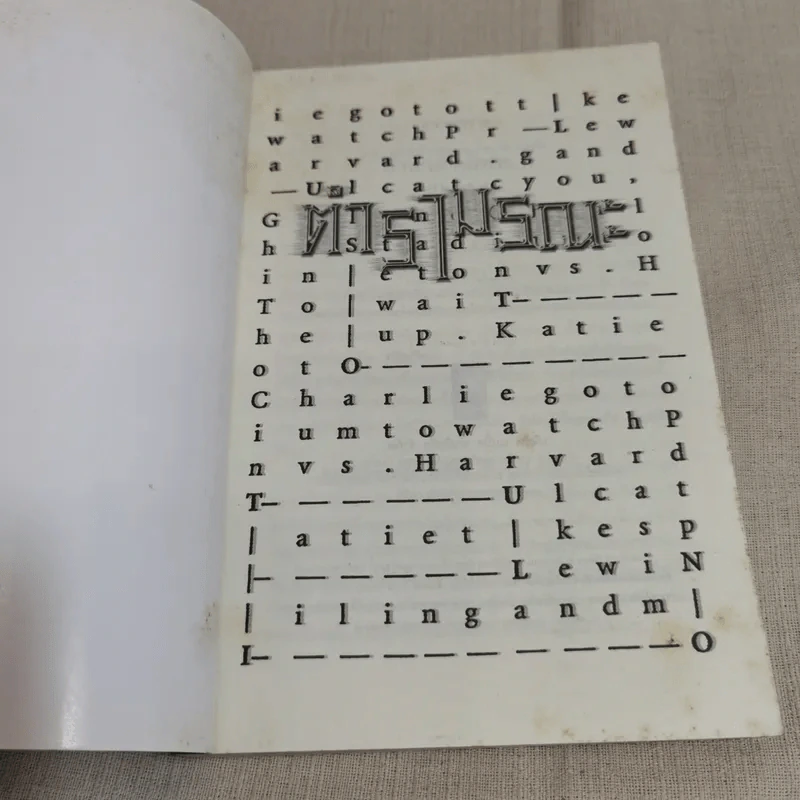 i e g o t o t t | k e
w a t c h P r — L e w
a r v a r d . g a n d
— U l c a t c y o u ,
ตำรามรณะ
i n | e t o n v s . H
T o | w a i T — — — —
h e | u p . K a t i e
o t O — — — — — — — —
C h a r l i e g o t o
i u m t o w a t c h P
n v s . H a r v a r d
T — — — — — U l c a t
| a t i e t | k e s p
| — — — — — L e w i N
| i l i n g a n d m |
I — — — — — — — — — O